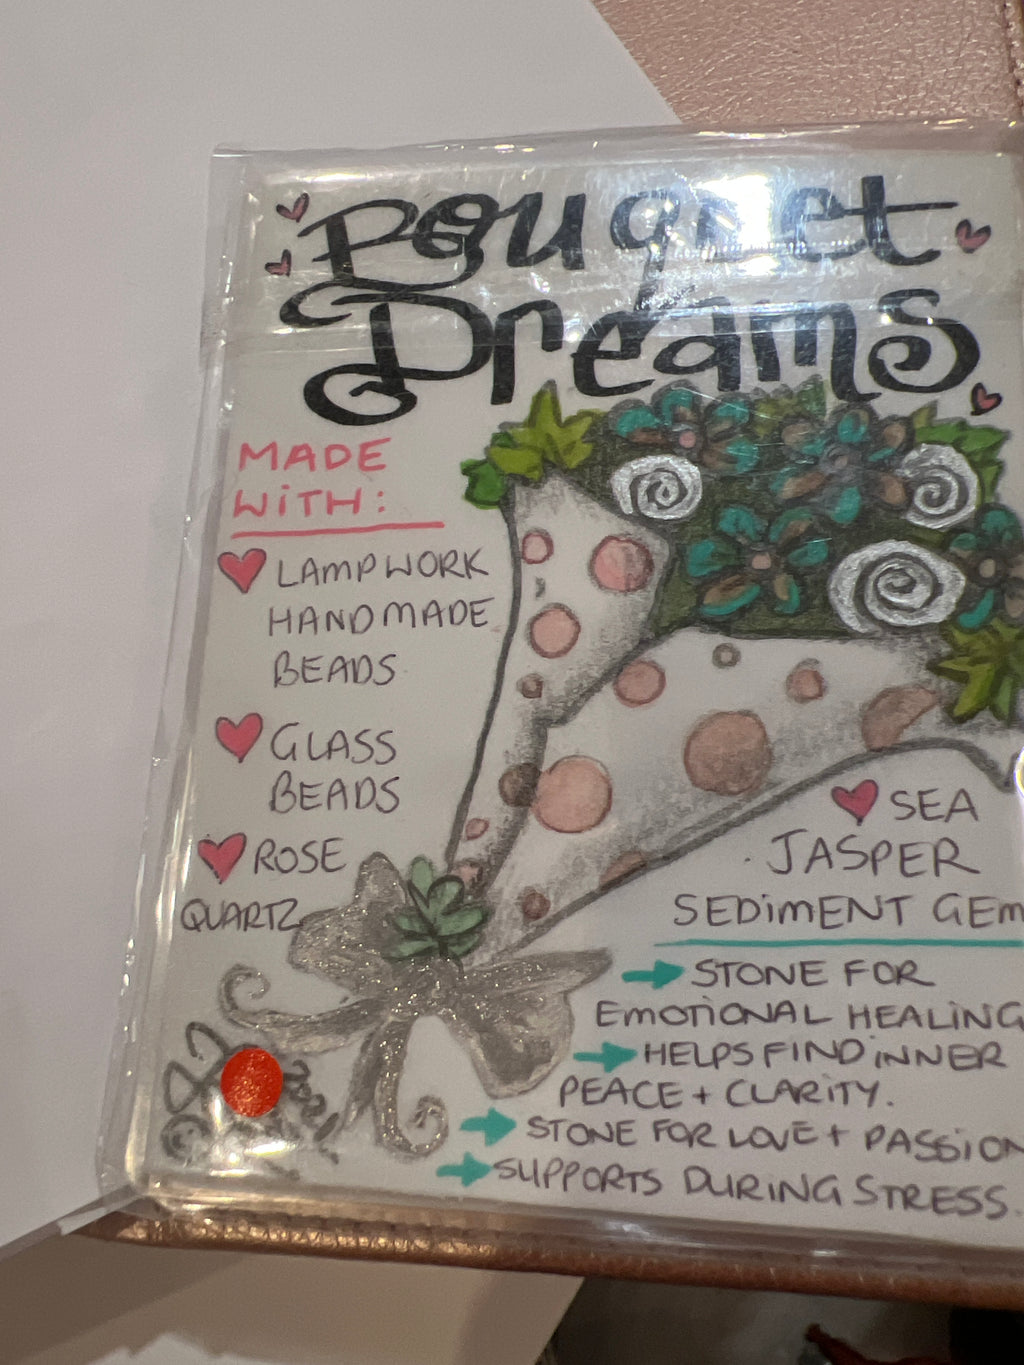 Bouquet
Dreams
MADE
WiTH:
LAMPWORK
HANDMADE
BEADS
GLASS
BEADS
ROSE
QUARTZ
SEA
JASPER
SEDiMENT GEM
STONE FOR
EMOTiONAL HEALiNG
HELPS FIND iNNER
PEACE + CLARiTY.
STONE FOR LOVE + PASSiON
SUPPORTS DURING STRESS.
2021